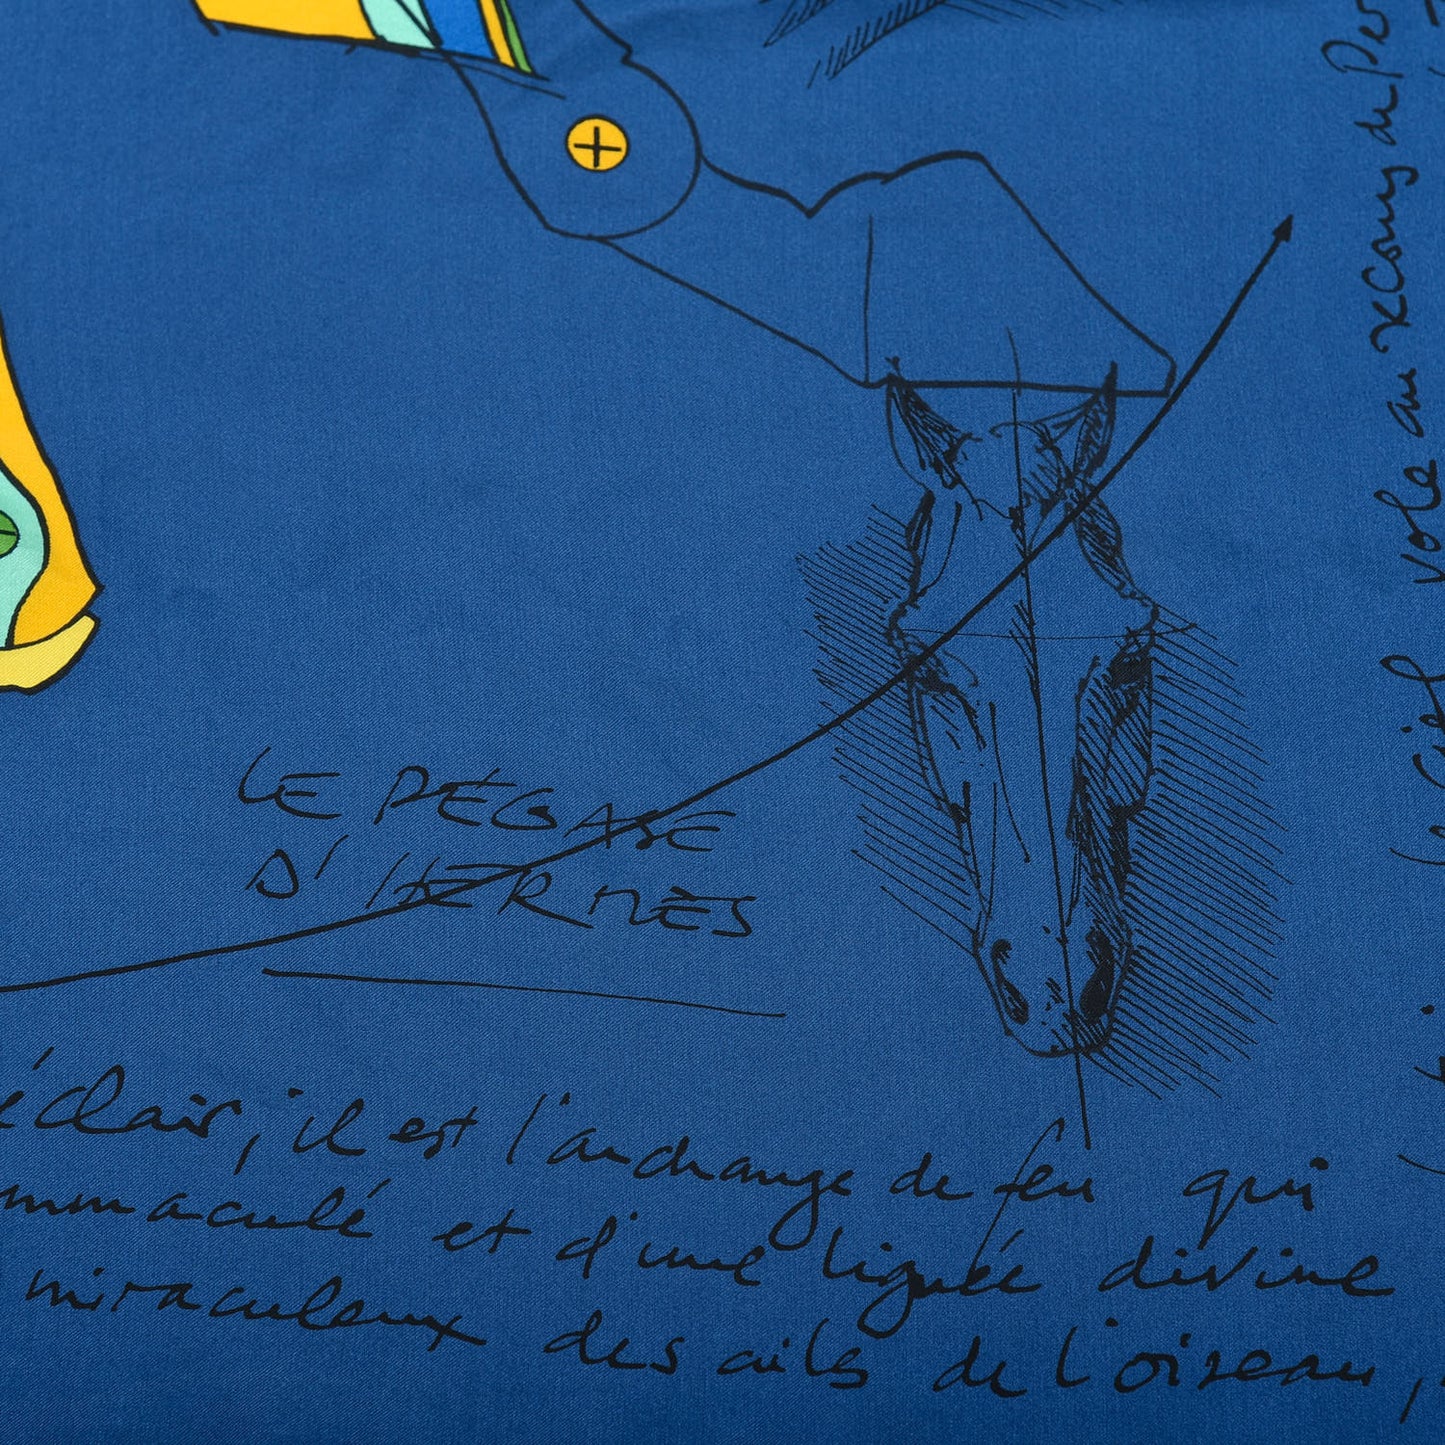 LE PÉGASE
D'HERMÈS
éclair, il est l'archange de feu qui
immaculé et d'une lignée divine
miraculeux des ailes de l'oiseau,
vole au secours de Per